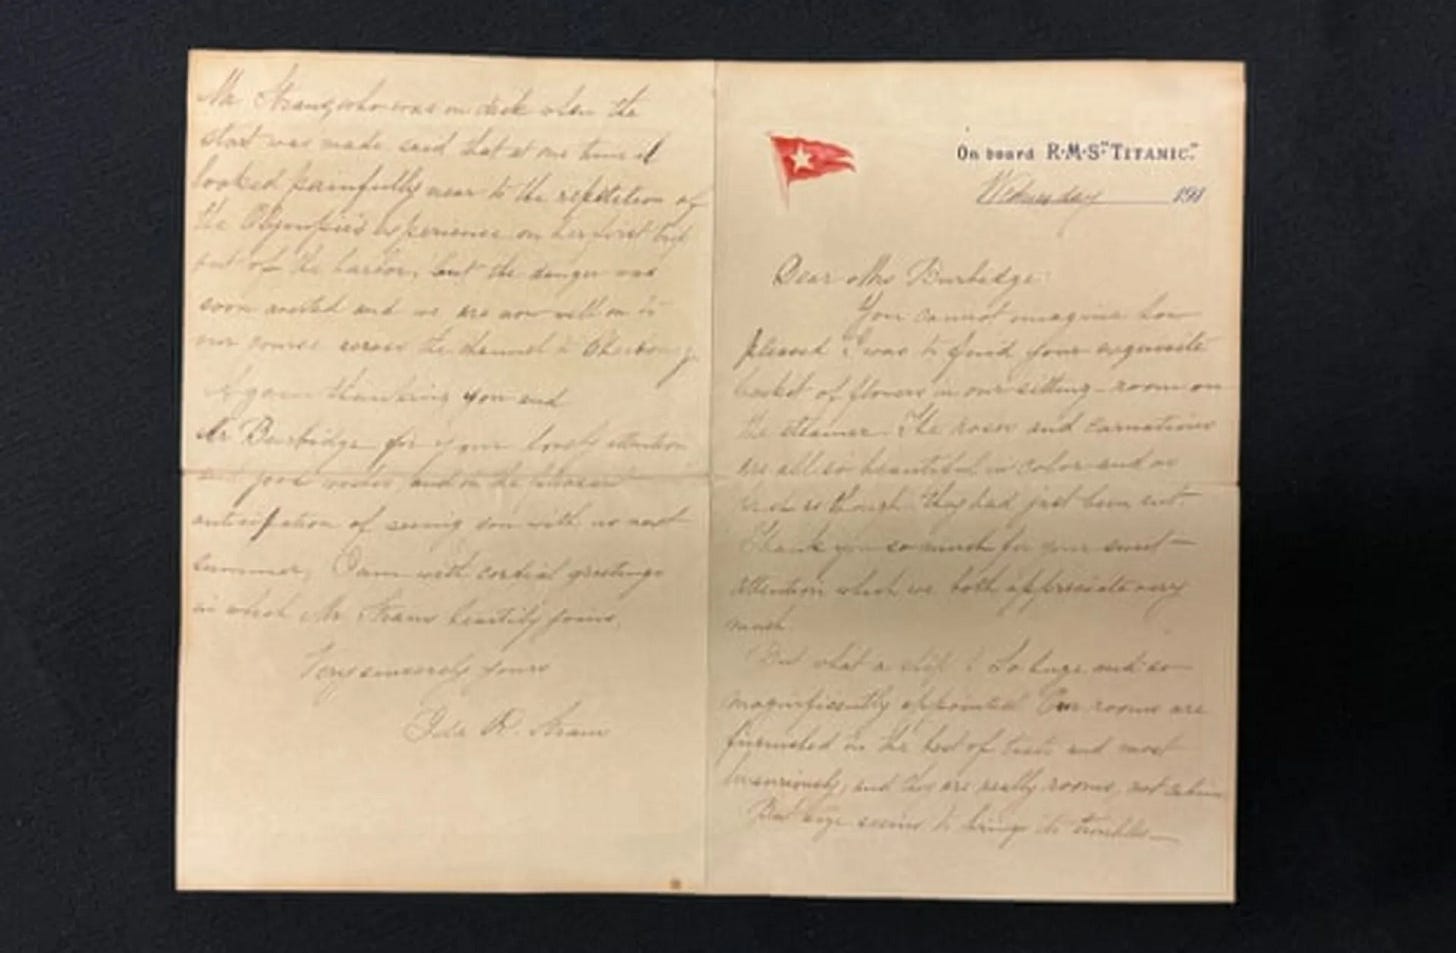 On board R·M·S· "TITANIC."
Wednesday 191
Dear Mrs Burbidge:
You cannot imagine how
pleased I was to find your exquisite
basket of flowers in our sitting-room on
the steamer. The roses and carnations
are all so beautiful in color and as
fresh as though they had just been cut.
Thank you so much for your sweet
attention which we both appreciate very
much.
But what a ship! So huge and so
magnificently appointed. Our rooms are
furnished in the best of taste and most
luxuriously, and they are really rooms, not cabins.
But size seems to bring its troubles—
Mr Straus, who was on deck when the
start was made, said that at one time it
looked painfully near to the repetition of
the Olympic's experience on her first trip
out of the harbor, but the danger was
soon averted and we are now well on to
our course across the channel to Cherbourg.
Again thanking you and
Mr Burbidge for your lovely attention
and good wishes, and in the pleasant
anticipation of seeing you with us next
summer, I am with cordial greetings
in which Mr Straus heartily joins,
Very sincerely yours
Ida R. Straus